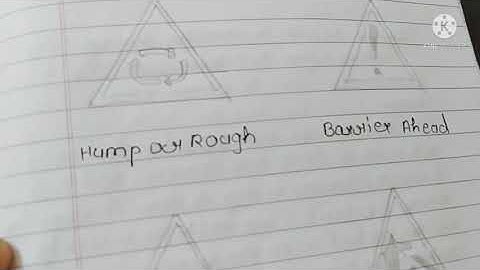 Hump or Rough
Barrier Ahead